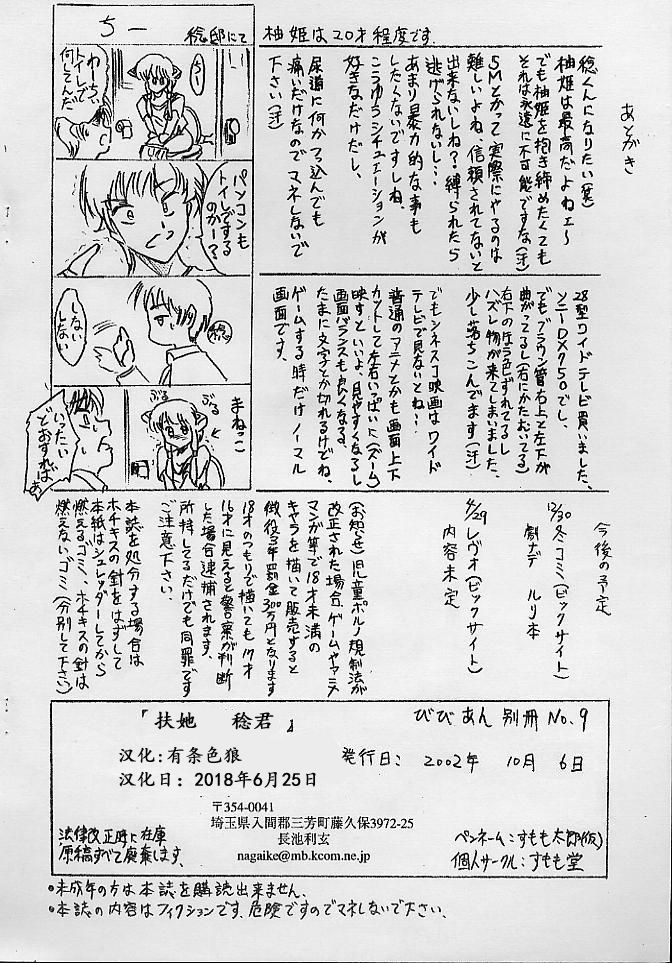 あとがき
稔邸にて
柚姫は20才程度です.
稔くんになりたい(笑)
柚姫は最高だよねェ〜
でも柚姫を抱き締めたくても
それは永遠に不可能ですな(汗)
SMとかって実際にやるのは
難しいよね、信頼されてないと
出来ないしね?縛られたら
逃げられないし…
あまり暴力的な事も
したくないですしね、
こうゆうシチュエーションが
好きなだけだし、
尿道に何かつっ込んでも
痛いだけなのでマネしないで
下さい(汗)
ちー
わーちぃ
トイレで
何してんだ
パソコンも
トイレでする
のかー?
稔
しない
しない
まねっこ
ぶる
ぶる
いったい
どおすれば
ぁ
28型ワイドテレビ買いました、
ソニーDX750でし、
でもブラウン管右上と左下が
曲がってるし(右にかたむいてる)
右下の方ラ色ずれてるし
ハズレ物が来てしまいました、
少し落ちこんでます(汗)
でもシネスコ映画はワイド
テレビで見ないとね!!
普通のアニメとかも画面上下
カットして左右いっぱいに(ズーム)
映すといいよ、見やすくなるし
画面バランスも良くなる、
たまに文字とか切れるけどね、
ゲームする時だけノーマル
画面です、
今後の予定
12/30冬コミ(ビックサイト)
劇ナデ ルリ本
4/29レヴォ(ビックサイト)
内容未定
(お知らせ)児童ポルノ規制法が
改正された場合、ゲームやアニメ
マンガ等で18才未満の
キャラを描いて販売すると
懲役3年罰金300万円となります
18才のつもりで描いても17才
16才に見えると警察が判断
した場合逮捕されます、
所持してるだけでも同罪です
ご注意下さい、
本誌を処分する場合は
ホチキスの針をはずして
本紙はシュレッダーしてから
燃えるゴミ、ホチキスの針は
燃えないゴミ(分別して下さい)
『扶她 稔君』
びびあん 別冊 No.9
汉化:有条色狼
汉化日: 2018年6月25日
発行日: 2002年 10月 6日
〒354-0041
埼玉県入間郡三芳町藤久保3972-25
長池利玄
nagaike@mb.kcom.ne.jp
法律改正時に在庫
原稿すべて廃棄します.
ペンネーム:すもも太郎(仮)
個人サークル:すもも堂
•未成年の方は本誌を購読出来ません.
•本誌の内容はフィクションです.危険ですのでマネしないで下さい.